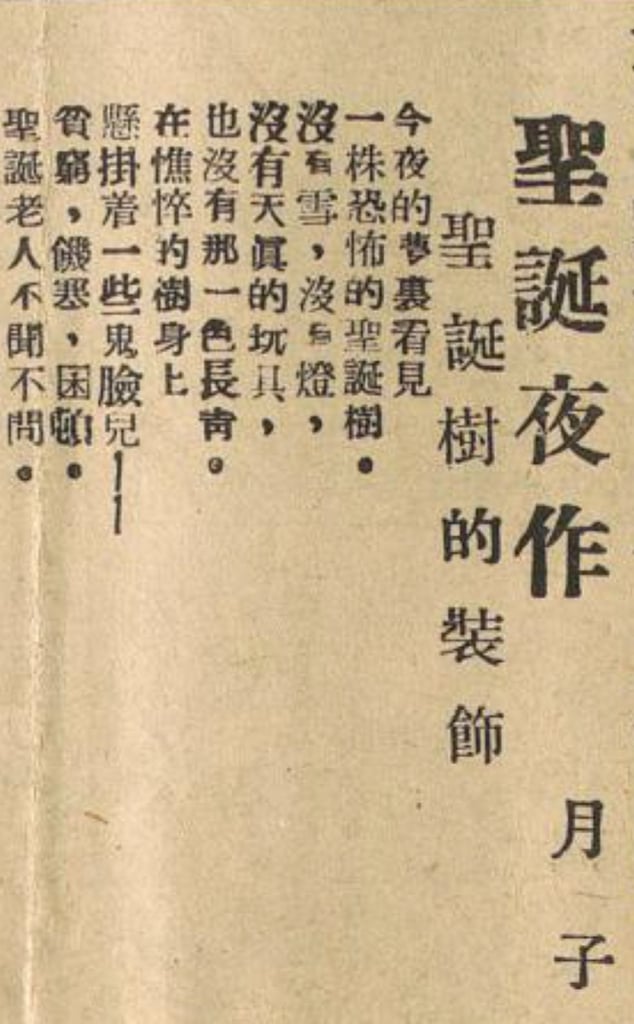 聖誕夜作
月子
聖誕樹的裝飾
今夜的夢裏看見
一株恐怖的聖誕樹。
沒有雪，沒有燈，
沒有天眞的玩具，
也沒有那一色長靑。
在憔悴的樹身上
懸掛着一些鬼臉兒——
貧窮，饑寒，困頓。
聖誕老人不聞不問。